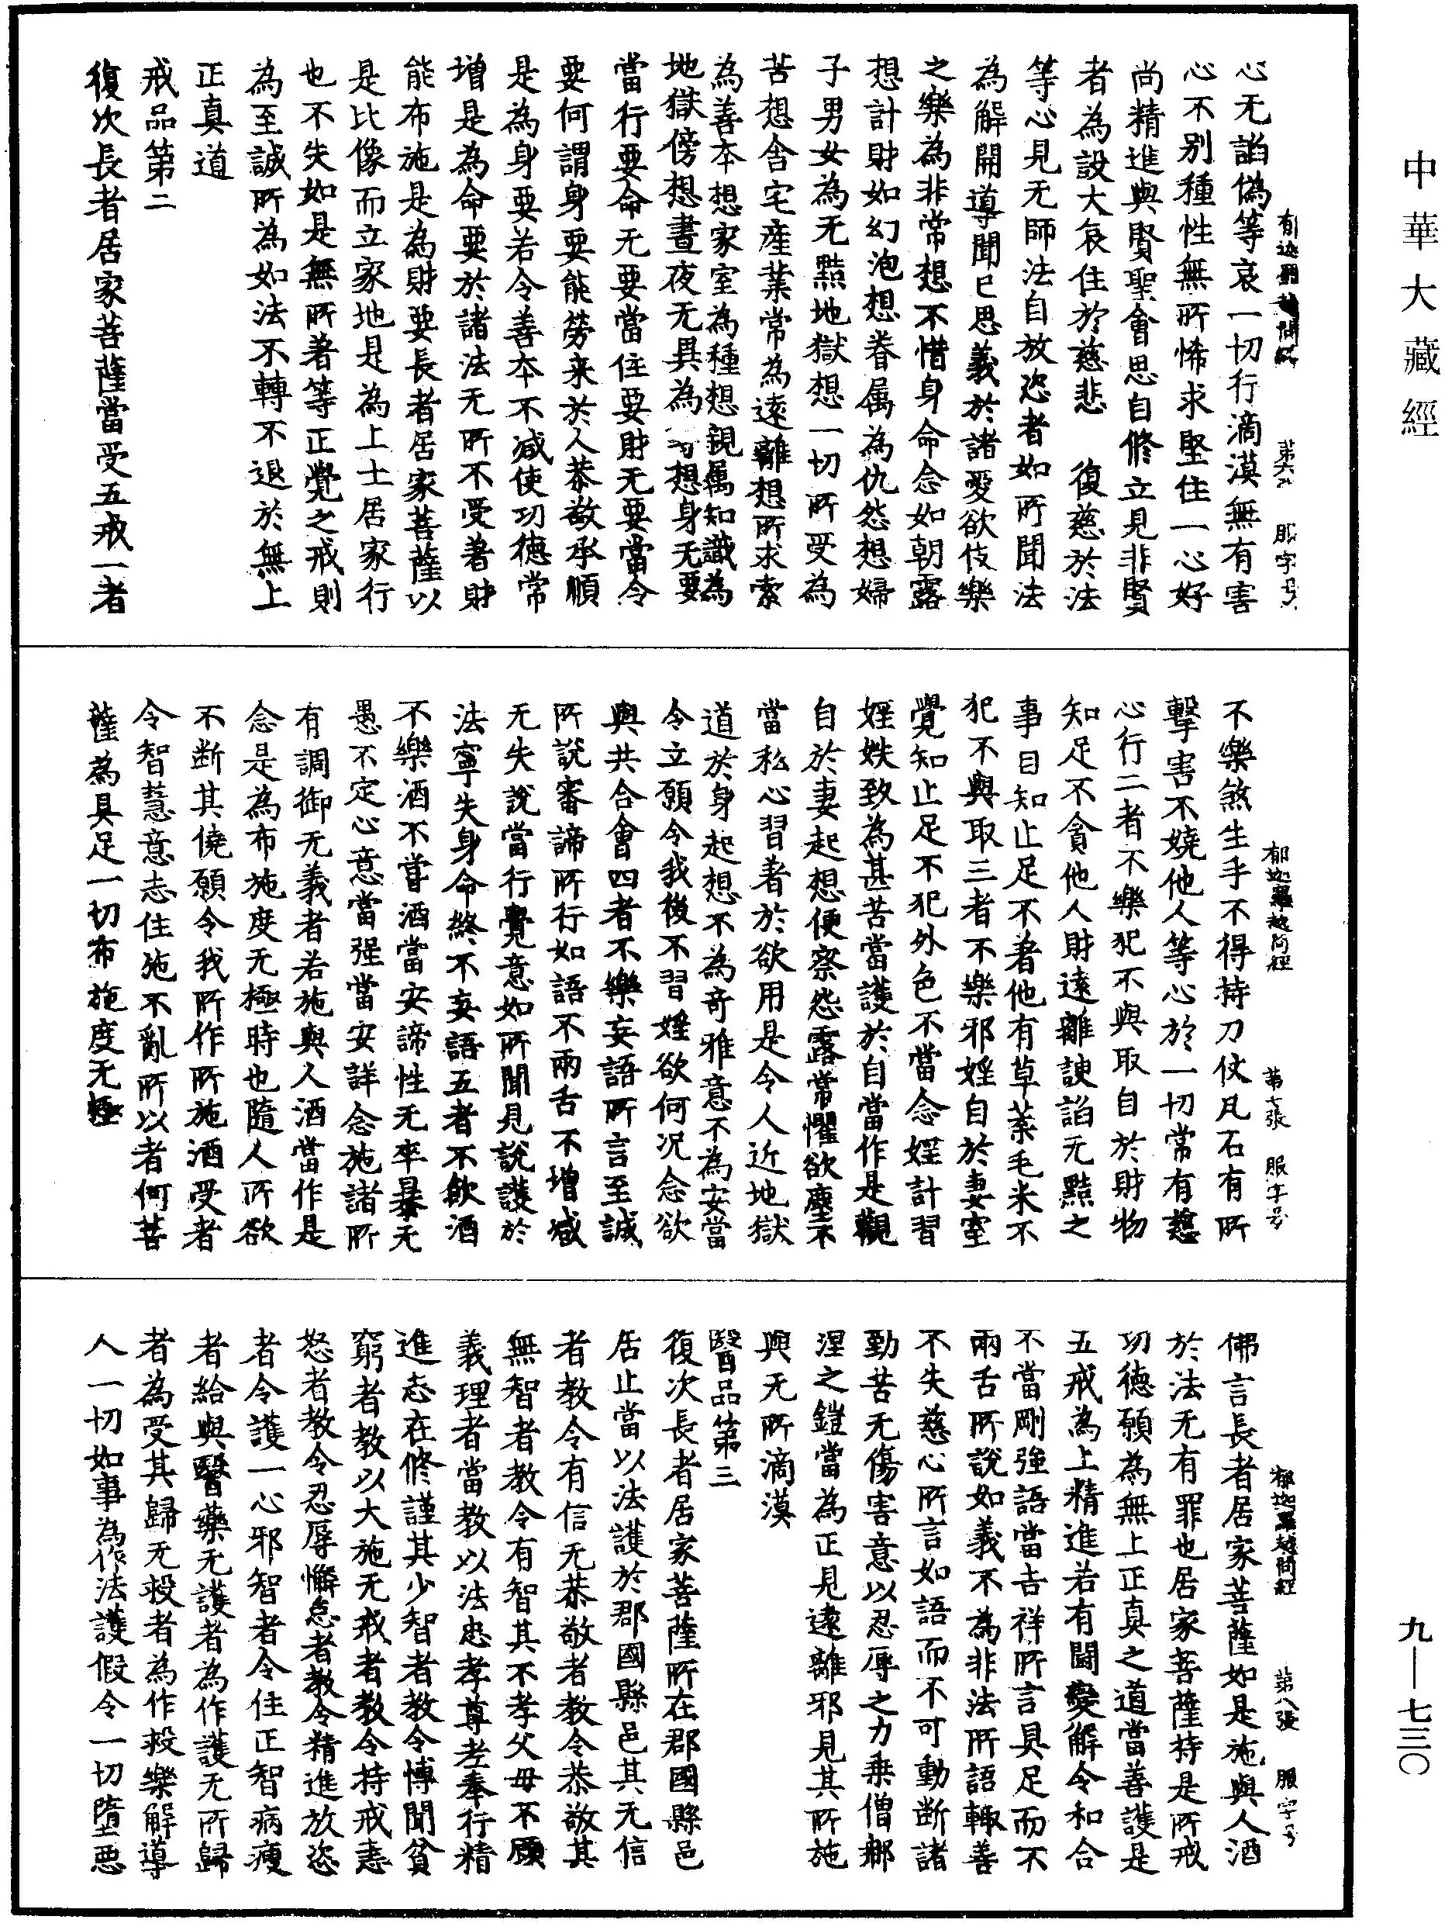 中華大藏經
郁迦羅越問經
心无諂偽等哀一切行滴漠無有害
心不別種性無所悕求堅住一心好
尚精進與賢聖會思自修立見非賢
者為設大哀住於慈悲 復慈於法
等心見无師法自放恣者如所聞法
為解開導聞已思義於諸愛欲伎樂
之樂為非常想不惜身命念如朝露
想計財如幻泡想眷属為仇怨想婦
子男女為无黠地獄想一切所受為
苦想舍宅產業常為遠離想所求索
為善本想家室為種想親属知識為
地獄傍想晝夜无異為 想身无要
當行要命无要當住要財无要當令
要何謂身要能勞来於人恭敬承順
是為身要若令善本不減使功德常
增是為命要於諸法无所不受著財
能布施是為財要長者居家菩薩以
是比像而立家地是為上士居家行
也不失如是無所著等正覺之戒則
為至誠所為如法不轉不退於無上
正真道
戒品第二
復次長者居家菩薩當受五戒一者
郁迦羅越問經 第七張 服字号
不樂煞生手不得持刀仗瓦石有所
擊害不嬈他人等心於一切常有慈
心行二者不樂犯不與取自於財物
知足不貪他人財遠離諛諂无黠之
事目知止足不著他有草葉毛米不
犯不與取三者不樂邪婬自於妻室
覺知止足不犯外色不當念婬計習
婬妷致為甚苦當護於自當作是觀
自於妻起想便察怨露常懼欲塵不
當私心習著於欲用是令人近地獄
道於身起想不為奇雅意不為安當
令立願令我後不習婬欲何况念欲
與共合會四者不樂妄語所言至誠
所說審諦所行如語不兩舌不增減
无失說當行覺意如所聞見說護於
法寧失身命終不妄語五者不飲酒
不樂酒不甞酒當安諦性无卒暴无
愚不定心意當强當安詳念施諸所
有調御无義者若施與人酒當作是
念是為布施度无極時也隨人所欲
不断其僥願令我所作所施酒受者
令智慧意志住施不亂所以者何菩
薩為具足一切布施度无極
郁迦羅越問經 第八張 服字号
佛言長者居家菩薩如是施與人酒
於法无有罪也居家菩薩持是所戒
功德願為無上正真之道當善護是
五戒為上精進若有鬪變解令和合
不當剛強語當吉祥所言具足而不
兩舌所說如義不為非法所語輙善
不失慈心所言如語而不可動断諸
勤苦无傷害意以忍辱之力乗僧那
涅之鎧當為正見遠離邪見其所施
與无所滴漠
醫品第三
復次長者居家菩薩所在郡國縣邑
居止當以法護於郡國縣邑其无信
者教令有信无恭敬者教令恭敬其
無智者教令有智其不孝父母不顧
義理者當教以法忠孝尊孝奉行精
進志在修謹其少智者教令博聞貧
窮者教以大施无戒者教令持戒恚
怒者教令忍辱懈怠者教令精進放恣
者令護一心邪智者令住正智病瘦
者給與醫藥无護者為作護无所歸
者為受其歸无救者為作救樂解導
人一切如事為作法護假令一切墮惡
九—七三〇